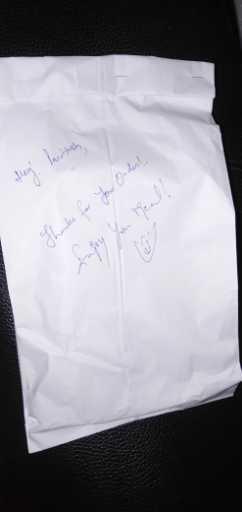 Hey!
Thanks for Your Order!
Enjoy Your Meal!